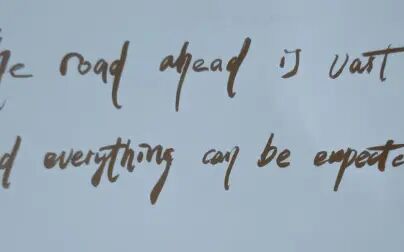 he road ahead is vast
d everything can be expecte